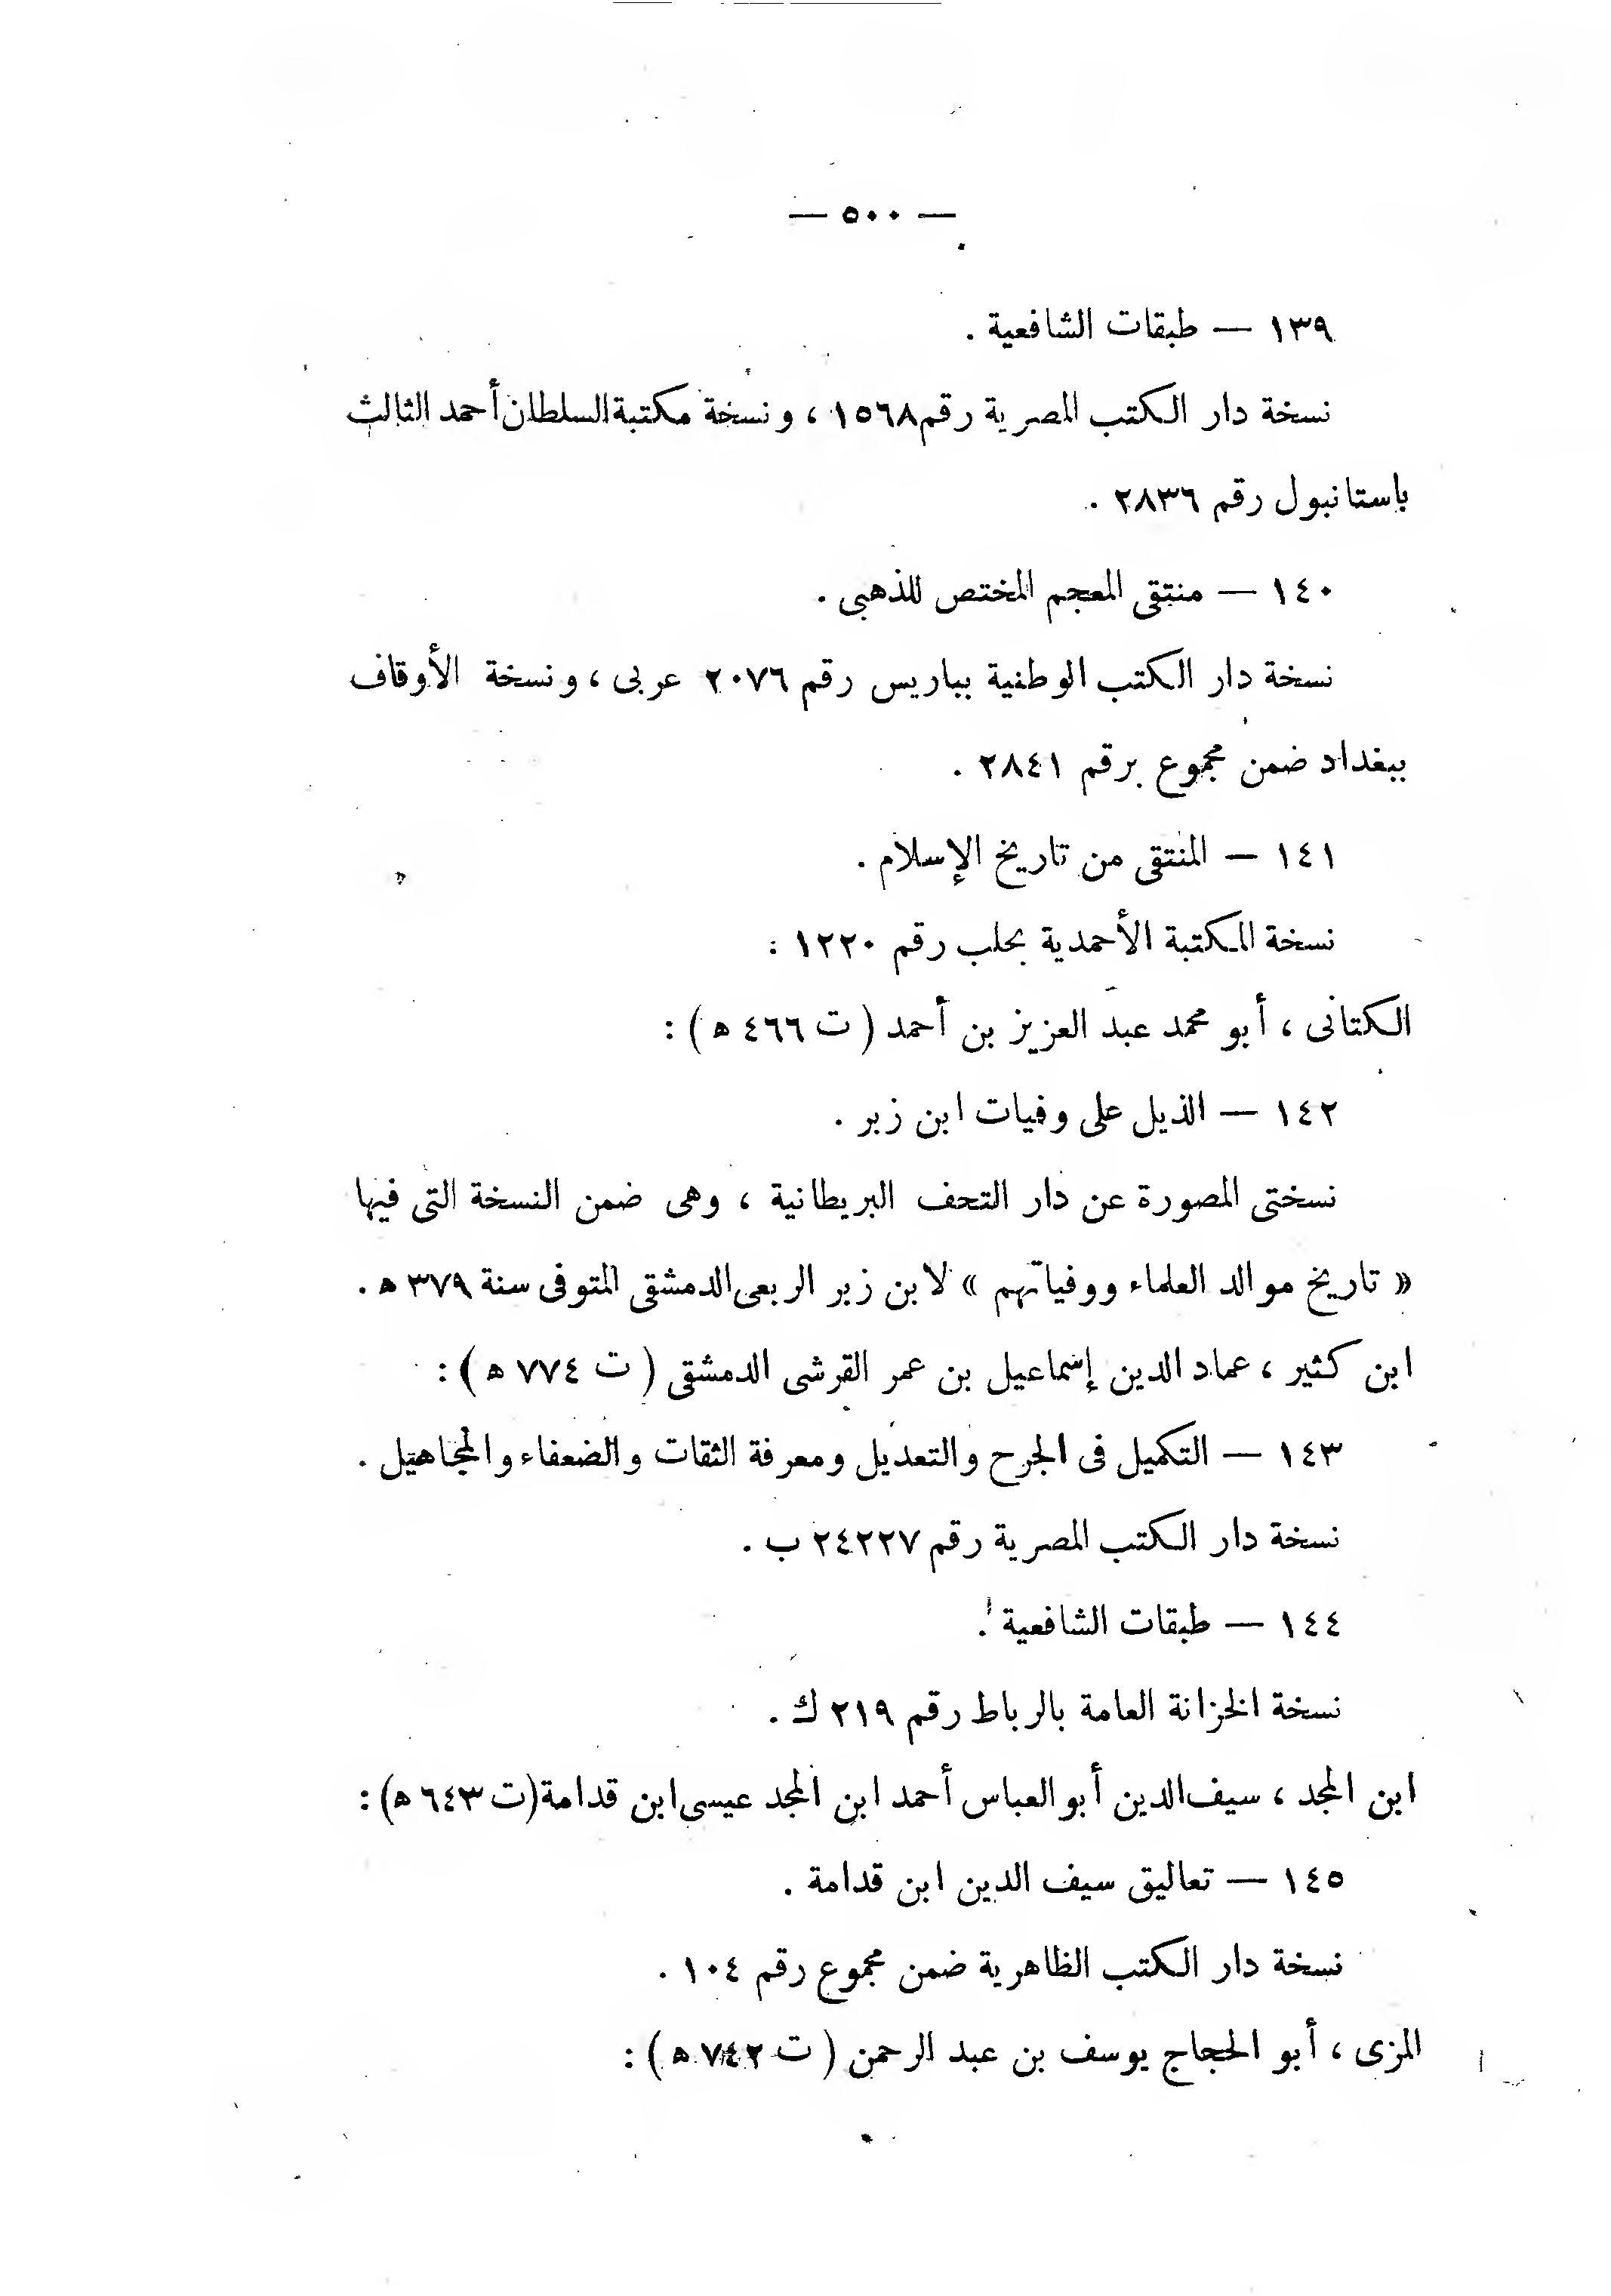 — ٥٠٠ —
١٣٩ — طبقات الشافعية .
نسخة دار الكتب المصرية رقم ١٥٦٨ ، ونسخة مكتبة السلطان أحمد الثالث
باستانبول رقم ٢٨٣٦ .
١٤٠ — منتقى المعجم المختص للذهبى .
نسخة دار الكتب الوطنية بباريس رقم ٢٠٧٦ عربى ، ونسخة الأوقاف
ببغداد ضمن مجموع برقم ٢٨٤١ .
١٤١ — المنتقى من تاريخ الإسلام .
نسخة المكتبة الأحمدية بحلب رقم ١٢٢٠ :
الكتانى ، أبو محمد عبد العزيز بن أحمد ( ت ٤٦٦ هـ ) :
١٤٢ — الذيل على وفيات ابن زبر .
نسختى المصورة عن دار التحف البريطانية ، وهى ضمن النسخة التى فيها
« تاريخ موالد العلماء ووفياتهم » لابن زبر الربعى الدمشقى المتوفى سنة ٣٧٩ هـ .
ابن كثير ، عماد الدين إسماعيل بن عمر القرشى الدمشقى ( ت ٧٧٤ هـ ) :
١٤٣ — التكميل فى الجرح والتعديل ومعرفة الثقات والضعفاء والمجاهيل .
نسخة دار الكتب المصرية رقم ٢٤٢٢٧ ب .
١٤٤ — طبقات الشافعية .
نسخة الخزانة العامة بالرباط رقم ٢١٩ ك .
ابن المجد ، سيف الدين أبو العباس أحمد ابن المجد عيسى ابن قدامة (ت ٦٤٣ هـ) :
١٤٥ — تعاليق سيف الدين ابن قدامة .
نسخة دار الكتب الظاهرية ضمن مجموع رقم ١٠٤ .
المزى ، أبو الحجاج يوسف بن عبد الرحمن ( ت ٧٤٢ هـ ) :